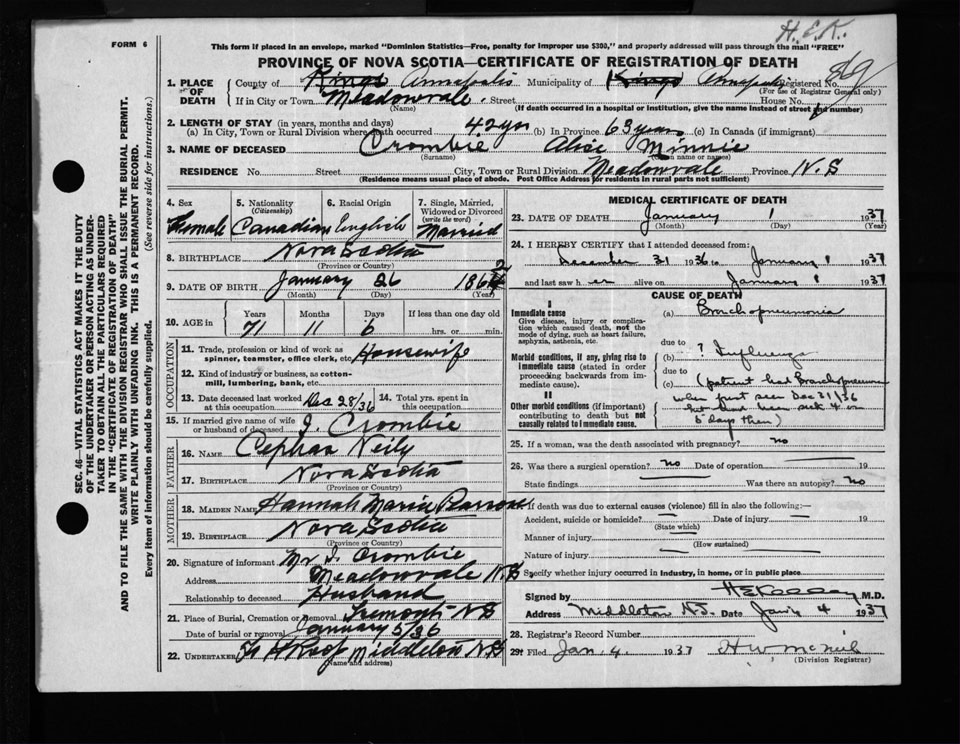 H.E.K.
FORM 6
This form if placed in an envelope, marked "Dominion Statistics—Free, penalty for improper use $300," and properly addressed will pass through the mail "FREE"
PROVINCE OF NOVA SCOTIA—CERTIFICATE OF REGISTRATION OF DEATH
869
1. PLACE OF DEATH County of Kings Annapolis Municipality of Kings Annapolis Registered No.
(For use of Registrar General only)
If in City or Town Meadowvale Street House No.
(Name) (If death occurred in a hospital or institution, give the name instead of street and number)
2. LENGTH OF STAY (in years, months and days)
(a) In City, Town or Rural Division where death occurred 42 yrs (b) In Province 63 years (c) In Canada (if immigrant)
3. NAME OF DECEASED Crombie Alice Minnie
(Surname) (Given name or names)
RESIDENCE No. Street City, Town or Rural Division Meadowvale Province N.S
(Residence means usual place of abode. Post Office Address for residents in rural parts not sufficient)
SEC. 46—VITAL STATISTICS ACT MAKES IT THE DUTY
OF THE UNDERTAKER OR PERSON ACTING AS UNDER-
TAKER TO OBTAIN ALL THE PARTICULARS REQUIRED
IN THE "CERTIFICATE OF REGISTRATION OF DEATH"
AND TO FILE THE SAME WITH THE DIVISION REGISTRAR WHO SHALL ISSUE THE BURIAL PERMIT.
WRITE PLAINLY WITH UNFADING INK. THIS IS A PERMANENT RECORD.
Every item of information should be carefully supplied. (See reverse side for instructions.)
4. Sex 5. Nationality (Citizenship) 6. Racial Origin 7. Single, Married, Widowed or Divorced (write the word)
Female Canadian English Married
8. BIRTHPLACE Nova Scotia
(Province or Country)
9. DATE OF BIRTH January 26 186
(Month) (Day) (Year)
10. AGE in Years Months Days If less than one day old
71 11 6 hrs. or min.
OCCUPATION
11. Trade, profession or kind of work as spinner, teamster, office clerk, etc. Housewife
12. Kind of industry or business, as cotton-mill, lumbering, bank, etc.
13. Date deceased last worked at this occupation Dec 28/36 14. Total yrs. spent in this occupation
15. If married give name of wife or husband of deceased J. Crombie
FATHER
16. Name Cephas Neily
17. Birthplace Nova Scotia
(Province or Country)
MOTHER
18. Maiden Name Hannah Maria
19. Birthplace Nova Scotia
(Province or Country)
20. Signature of informant Mr J. Crombie
Address Meadowvale N.S
Relationship to deceased Husband
21. Place of Burial, Cremation or Removal Tremont N S
Date of burial or removal January 5/36
22. Undertaker Roop Middleton N.S
(Name and address)
MEDICAL CERTIFICATE OF DEATH
23. DATE OF DEATH January 1 1937
(Month) (Day) (Year)
24. I HEREBY CERTIFY that I attended deceased from:
December 31 1936 to January 1 1937
and last saw her alive on January 1 1937
CAUSE OF DEATH
I
Immediate cause
Give disease, injury or complication which caused death, not the mode of dying, such as heart failure, asphyxia, asthenia, etc.
(a) Bronchopneumonia
due to
Morbid conditions, if any, giving rise to immediate cause (stated in order proceeding backwards from immediate cause).
(b) ? Influenza
due to
(c) (patient had Bronchopneumonia
when first seen Dec 31/36
but had been sick 4 or
5 days then)
II
Other morbid conditions (if important) contributing to death but not causally related to immediate cause.
25. If a woman, was the death associated with pregnancy? no
26. Was there a surgical operation? no Date of operation 19
State findings Was there an autopsy? no
If death was due to external causes (violence) fill in also the following:—
Accident, suicide or homicide? Date of injury 19
(State which)
Manner of injury
(How sustained)
Nature of injury
Specify whether injury occurred in industry, in home, or in public place
Signed by M.D.
Address Middleton N.S. Date Jan 4 1937
28. Registrar's Record Number
29. Filed Jan. 4 1937 H W McNeil
(Division Registrar)